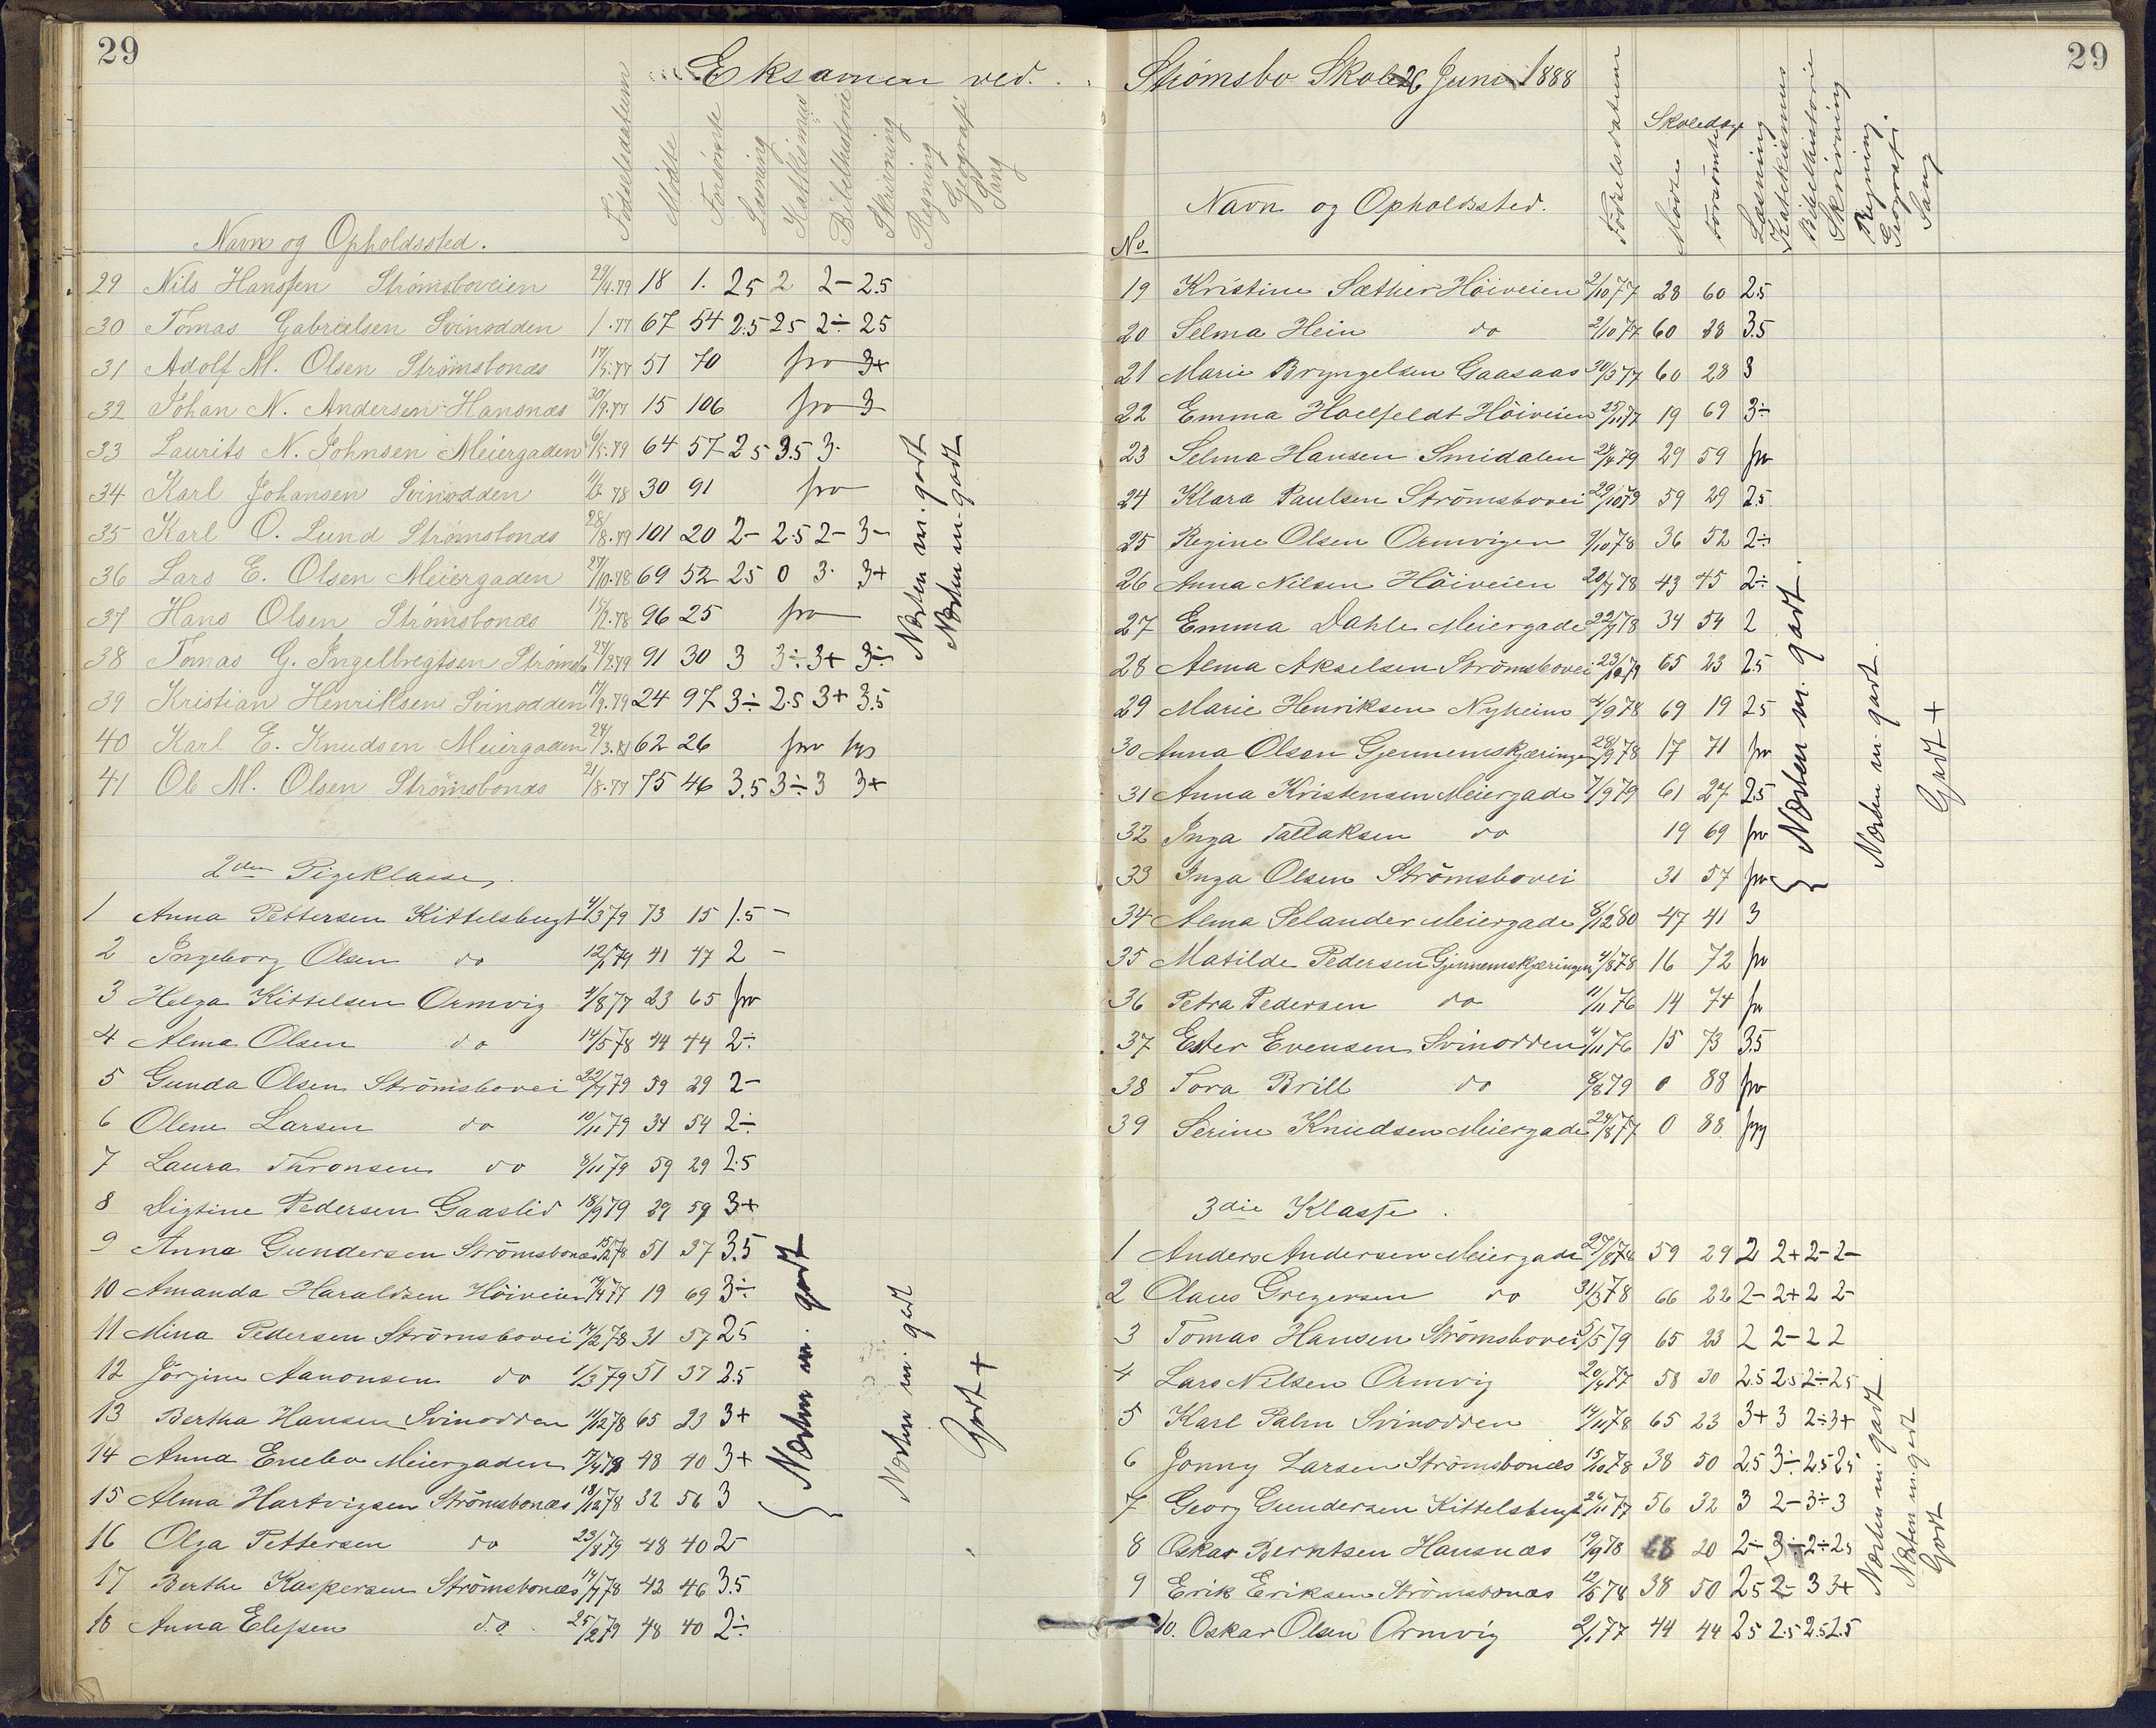 29
Eksamen ved
Navn og Opholdssted. Fødselsdatum Mødte Forsømte Læsning Katekismus Bibelhistorie Skrivning Regning Geografi Sang
29 Nils Hanssen Strømsboveien 29/4.79 18 1. 25 2 2- 2.5
30 Tomas Gabrielsen Svinodden 67 54 2.5 25 2÷ 25
31 Adolf M. Olsen Strømsbonæs 17/5.77 51 70 fra 3+
32 Johan N. Andersen Hansnæs 30/9.77 15 106 fra 3
33 Laurits N. Johnsen Meiergaden 6/5.79 64 57 25 3.5 3.
34 Karl Johansen Svinodden 30 91 fra
35 Karl O. Lund Strømsbonæs 28/8.79 101 20 2- 2.5 2- 3-
36 Lars E. Olsen Meiergaden 27/10.78 69 52 25 0 3. 3+
37 Hans Olsen Strømsbonæs 15/2.78 96 25 fra
38 Tomas G. Ingelbregtsen Strømsb 27/2.79 91 30 3 3÷ 3+ 3÷
39 Kristian Henriksen Svinodden 17/9.79 24 97 3÷ 2.5 3+ 3.5
40 Karl E. Knudsen Meiergaden 24/3.81 62 26 fra
41 Ole M. Olsen Strømsbonæs 21/8.77 75 46 3.5 3÷ 3 3+
Næsten m. godt
Næsten m. godt
2den Pigeklasse
1 Anna Pettersen Kittelsbugt 4/3 79 73 15 1.5 -
2 Ingeborg Olsen do 12/1 79 41 47 2 -
3 Helga Kittelsen Ormvig 4/8 77 23 65 fra
4 Alma Olsen do 14/5 78 44 44 2÷
5 Gunda Olsen Strømsbovei 22/7 79 59 29 2-
6 Oline Larsen do 10/11 79 34 54 2÷
7 Laura Thronsen do 8/11 79 59 29 2.5
8 Digtine Pedersen Gaaslid 18/9 79 29 59 3+
9 Anna Gundersen Strømsbonæs 51 37 3.5
10 Amanda Haraldsen Høiveien 19 69 3÷
11 Mina Pedersen Strømsbovei 14/2 78 31 57 25
12 Jørgine Aanonsen do 1/3 79 51 37 2.5
13 Bertha Hansen Svinodden 11/12 78 65 23 3+
14 Anna Enebo Meiergaden 48 40 3+
15 Alma Hartvigsen Strømsbonæs 18/12 78 32 56 3
16 Olga Pettersen do 23/8 79 48 40 2-
17 Berthe Kaspersen Strømsbonæs 14/7 78 42 46 3.5
18 Anna Elefsen do. 25/2 79 48 40 2÷
Næsten m. godt
Næsten m. godt
Godt +
29
Strømsbo Skole 26 Juni 1888
No Navn og Opholdssted. Fødselsdatum Skoledage Mødte Forsømte Læsning Katekismus Bibelhistorie Skrivning Regning. Geografi. Sang
19 Kristine Sæther Høiveien 2/10 77 28 60 2.5
20 Selma Hein do 2/10 77 60 28 3.5
21 Marie Bryngelsen Gaasaas 30/3 77 60 28 3
22 Emma Hoelfeldt Høiveien 25/11 77 19 69 3÷
23 Selma Hansen Smidalen 24/4 79 29 59 fra
24 Klara Paulsen Strømsbovei 29/10 79 59 29 2.5
25 Regine Olsen Ormvigen 9/10 78 36 52 2÷
26 Anna Nilsen Høiveien 20/7 78 43 45 2÷
27 Emma Dahle Meiergade 22/9 78 34 54 2
28 Alma Akselsen Strømsbovei 65 23 2.5
29 Marie Henriksen Nyheim 4/9 78 69 19 25
30 Anna Olsen Gjennemskjæringen 28/9 78 17 71 fra
31 Anna Kristensen Meiergade 7/9 79 61 27 2.5
32 Inga Tallaksen do 19 69 fra
33 Inga Olsen Strømsbovei 31 57 fra
34 Alma Selander Meiergade 8/12 80 47 41 3
35 Matilde Pedersen Gjennemskjæringen 4/8 78 16 72 fra
36 Petra Pedersen do 11/11 76 14 74 fra
37 Ester Evensen Svinodden 4/11 76 15 73 3.5
38 Tora Brill do 8/8 79 0 88 fra
39 Serine Knudsen Meiergade 24/8 77 0 88
Næsten m. godt.
Næsten m. godt.
Godt +
3die Klasse.
1 Anders Andersen Meiergade 59 29 2 2+ 2- 2-
2 Olaus Gregersen do 31/3 78 66 22 2- 2+ 2 2-
3 Tomas Hansen Strømsbovei 5/5 79 65 23 2 2- 2 2
4 Lars Nilsen Ormvig 20/4 77 58 30 2.5 2.5 2÷ 25
5 Karl Palm Svinodden 14/11 78 65 23 3+ 3 2÷ 3+
6 Jonny Larsen Strømsbonæs 15/10 78 38 50 2.5 3÷ 2.5 25
7 Georg Gundersen Kittelsbugt 26/11 77 56 32 3 2- 3÷ 3
8 Oskar Berntsen Hansnæs 19/9 78 68 20 2- 3÷ 2÷ 2.5
9 Erik Eriksen Strømsbonæs 38 50 25 2- 3 3+
10. Oskar Olsen Ormvig 2/1 77 44 44 25 2.5 2.5 2.5
Næsten m. godt.
Næsten m. godt
Godt